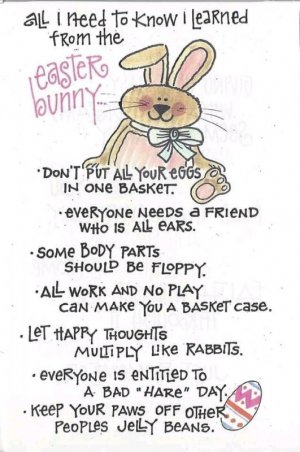 all i need to know i learned
from the
easter
bunny
• DON'T PUT ALL YOUR eGGS
IN ONE BASKET.
• eVERYONE NEEDS a FRIEND
WHO IS ALL EARS.
• SOME BODY PARTS
SHOULD BE FLOPPY.
• ALL WORK AND NO PLAY
CAN MAKE YOU A BASKET CASE.
• LET HAPPY THOUGHTS
MULTIPLY LIKE RABBITS.
• eVERYONE IS ENTITLED TO
A BAD "HARE" DAY.
• KEEP YOUR PAWS OFF OTHER
PEOPLES JELLY BEANS.